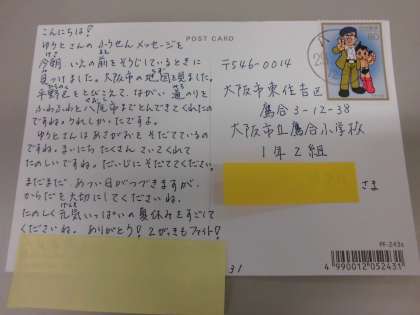 こんにちは！
ゆりとさんの ふうせんメッセージを
今朝 いえの前をそうじしているときに
見つけました。大阪市の地図を見ました。
平野区をとびこえて、ながい 道のりを
ふわふわと八尾市までとんできてくれたの
ですね。うれしかったですよ。
ゆりとさんは あさがおを そだてているの
ですね。まいにち たくさん さいてくれて
たのしいですね。だいじに そだててください。
まだまだ あつい日がつづきますが、
からだを大切にしてくださいね。
たのしく元気いっぱいの夏休みをすごして
くださいね。ありがとう！2がっきもファイト！
31
POST CARD
80
〒546-0014
大阪市東住吉区
鷹合3-12-38
大阪市立鷹合小学校
1年2組
さま
PF-2436
4 990012 052431